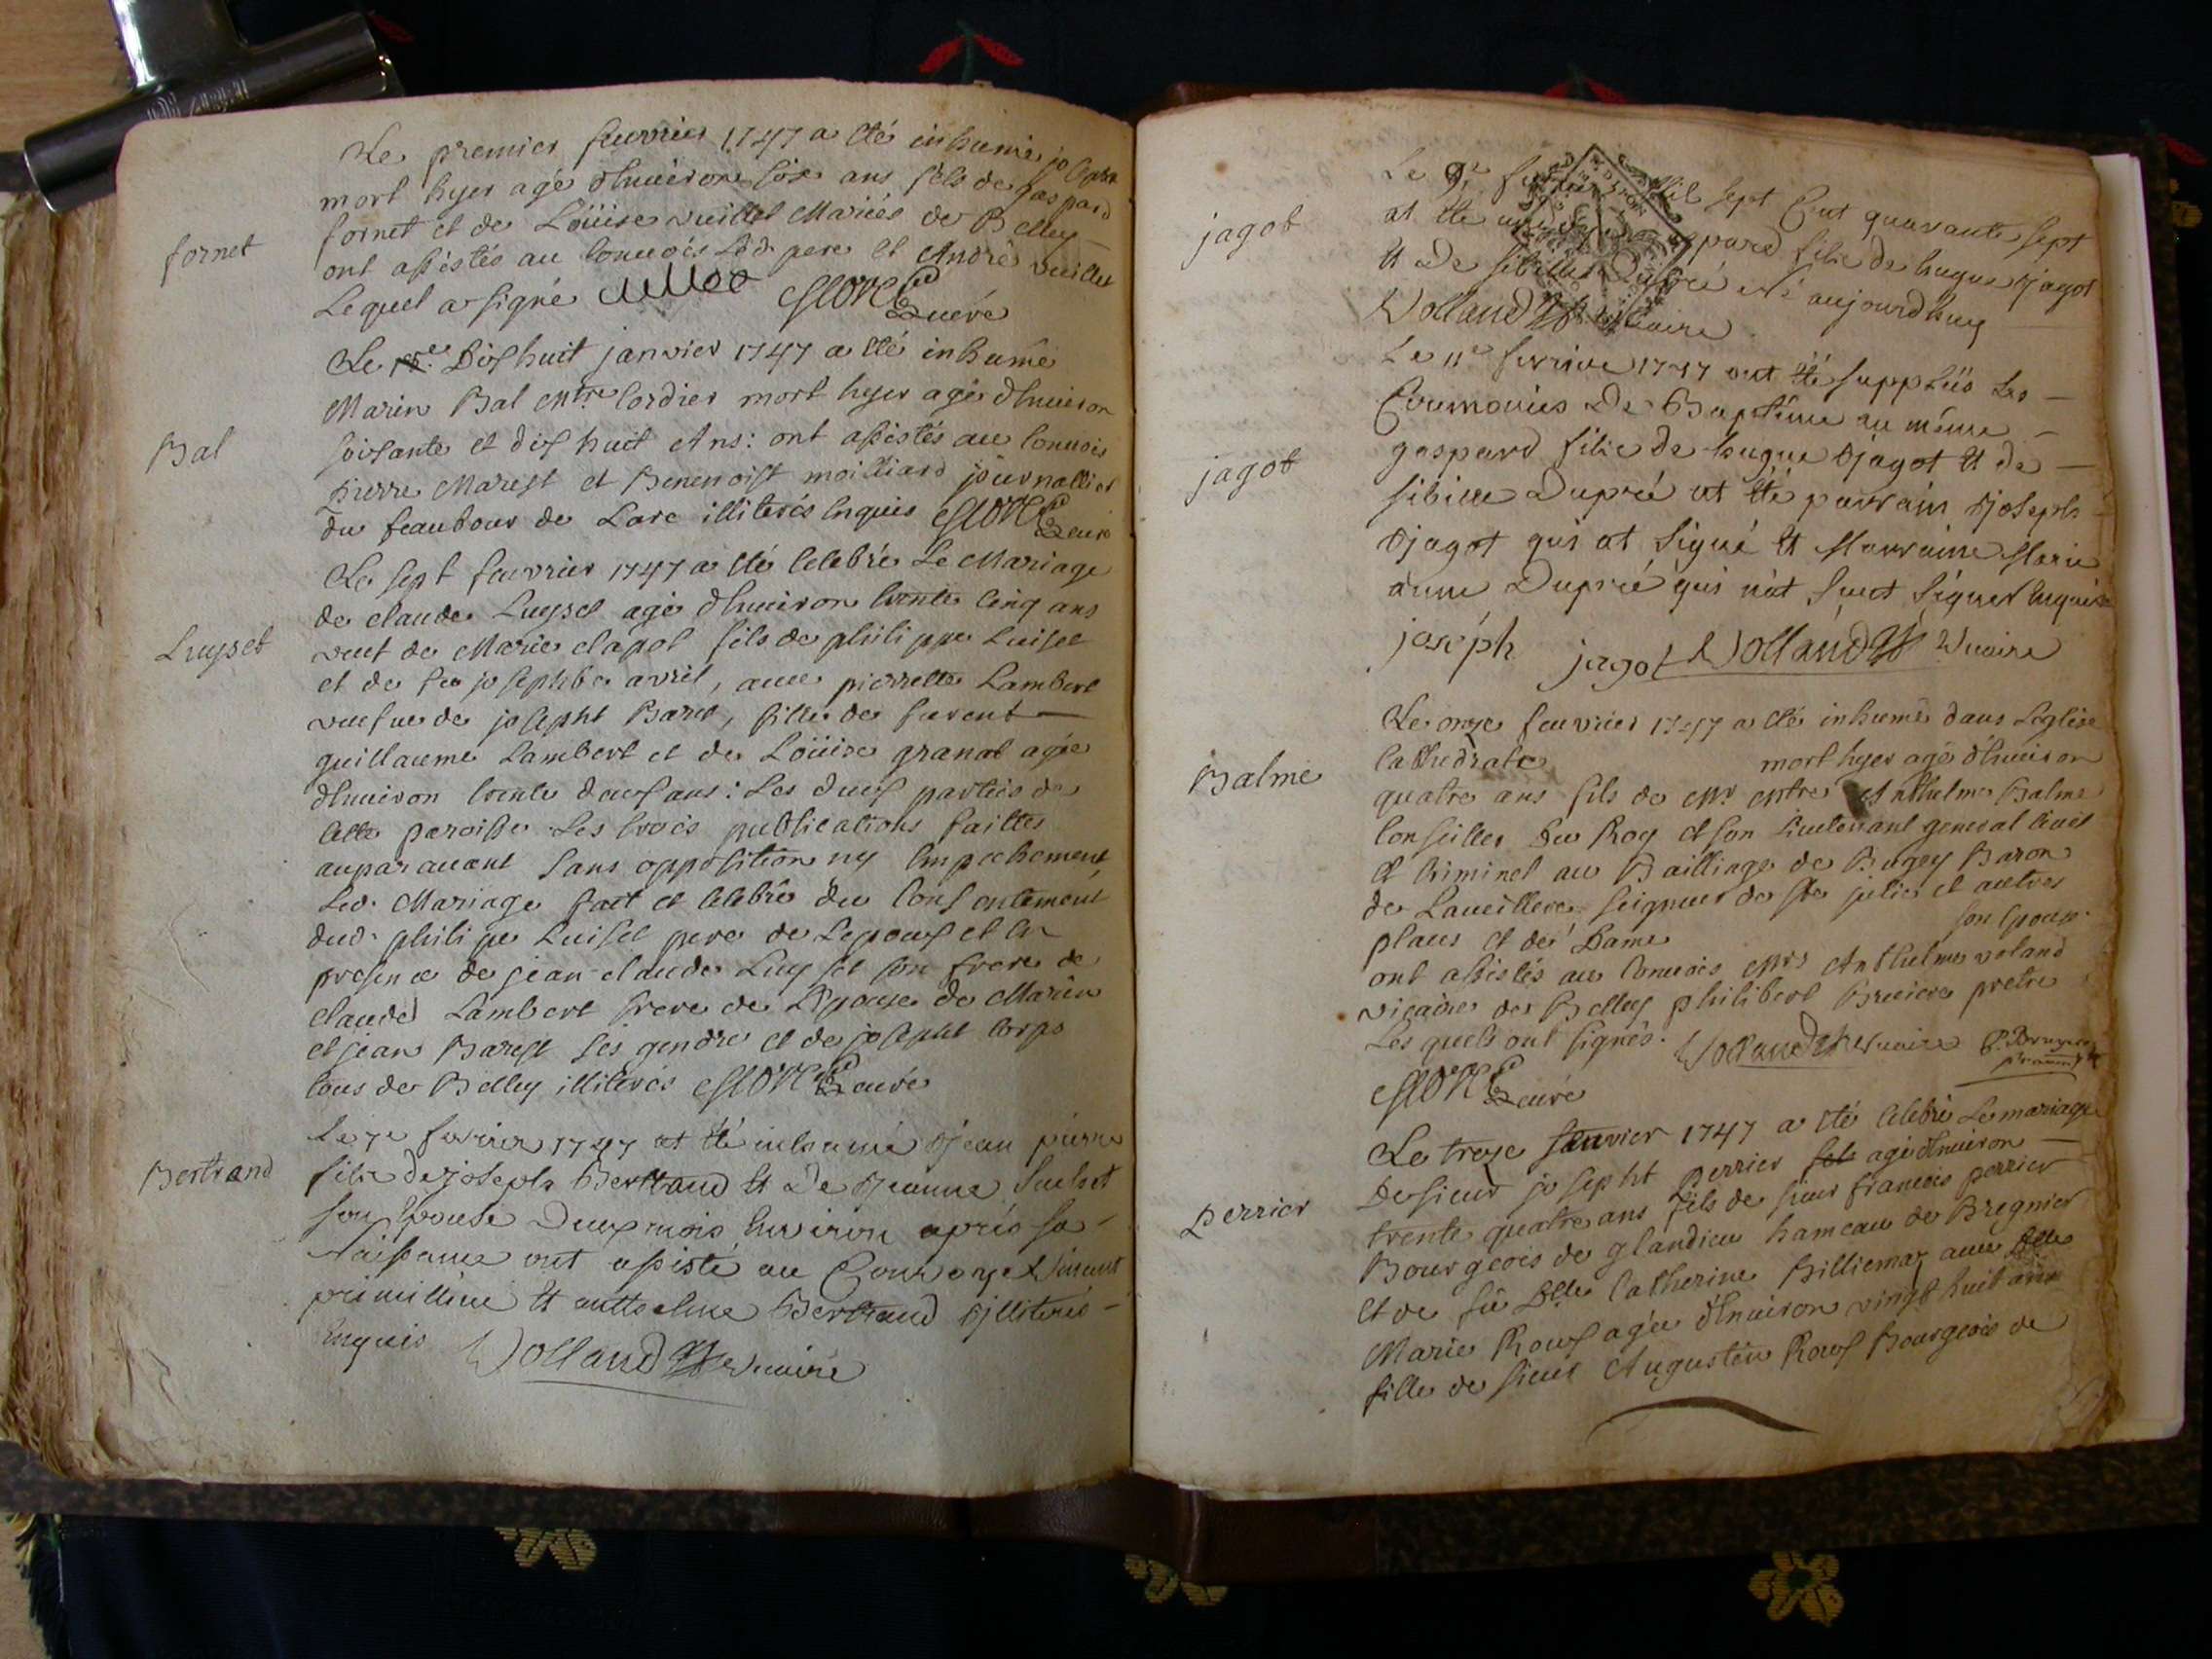 Le premier feuvrier 1747 a eté inhumé joseph
mort hyer agé d'huiron six ans fils de gaspard
fornet
fornet et de Loüise vuillet Mariés de Belley
ont assistés au convois led pere et André vuillet
Lequel a signé curé
Le Dixhuit janvier 1747 a eté inhumé
Marin Bal mtre Cordier mort hyer agé d'huiron
Bal
soixante et dix huit Ans: ont assistés au convois
pierre Marest et Benenoist moilliard journallier
du feaubour de Lare illiterés enquis curé
Le sept feuvrier 1747 a eté celebré Le Mariage
de claude Luyset agé d'huiron trente cinq ans
Luyset
veuf de Marie clapot fils de philippe Luiset
et de feu josephte avril, avec pierrette Lambert
veufue de josepht Baret, fille de furent
guillaume Lambert et de Loüise granat agée
d'huiron trente deux ans: Les deux parties de
cette paroisse Les trois publications faittes
auparauant sans opposition ny empechement,
Led. Mariage fait et celebré du consentement
dud. philipe Luiset pere de Lepoux et en
presence de jean claude Luyset son frere de
claude Lambert frere de L'Epouse de Marin
et jean Barest ses gendre et de josepht Corps
tous de Belley illiterés curé
Le 7e fevrier 1747 at été inhumé Jean pierre
Bertrand
fils de joseph Bertrand et De Jeanne
son Epouse Deux mois Environ après sa
Naissance ont assisté au Convoy
et anthelme Bertrand illiterés
Enquis Volland vicaire
Le 9e mil sept Cent quarante sept
jagot
at été gaspard fils de hugue jagot
et De sibille Dupré né aujourdhuy
Volland vicaire
Le 11e fevrier 1747 ont été suppléés Les
Ceremonies De Baptême au même
jagot
gaspard fils de hugue jagot et de
sibille Dupré at été parrain joseph
jagot qui at signé et Marraine Marie
anne Dupré qui n'at sceut signer enquise
joseph jagot Volland vicaire
Le onze feuvrier 1747 a eté inhumé dans Leglise
Cathedrale mort hyer agé d'huiron
Balme
quatre ans fils de Mr Mtre Anthelme Balme
Conseiller Du Roy et son Lieutenant general Civil
et Criminel au Bailliage de Bugey Baron
de seigneur de Ste julie et autres
places et de Dame son epouse
ont assistés au Convois Mrs Anthelme voland
vicaire de Belley philibert Bruiere pretre
Les quels ont signés. Volland vicaire P. Bruyere
curé
Le treze feuvrier 1747 a eté celebré Le mariage
De sieur josepht perrier fils agé d'huiron
Perrier
trente quatre ans fils de sieur francois perrier
Bourgeois de glandieu hameau de Bregnier
et de fu Dlle Catherine Billiemaz avec Dlle
Marie Roux agée d'huiron vingt huit ans
fille de sieur Augustin Roux Bourgeois de